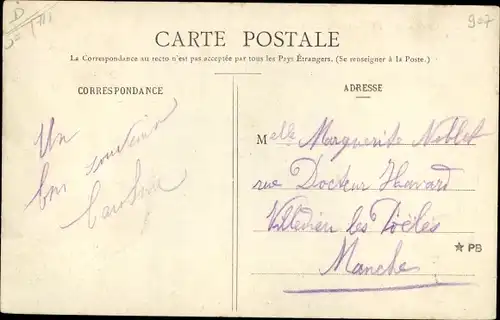 907
CARTE POSTALE
La Correspondance au recto n'est pas acceptée par tous les Pays Étrangers. (Se renseigner à la Poste.)
CORRESPONDANCE
ADRESSE
Un
bon souvenir
Caroline
Melle Marguerite Noblet
rue Docteur Havard
Villedieu les Poëles
Manche
★ PB